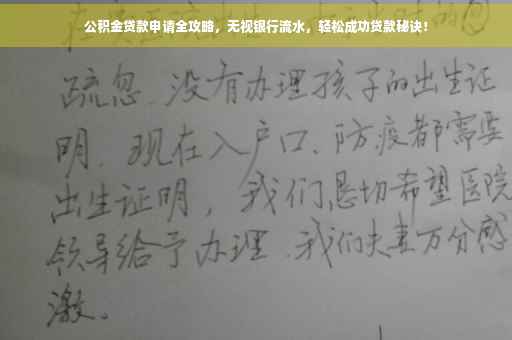 公积金贷款申请全攻略，无视银行流水，轻松成功贷款秘诀！
疏忽、没有办理孩子的出生证
明、现在入户口、防疫都需要
出生证明，我们恳切希望医院
领导给予办理、我们夫妻万分感
激。